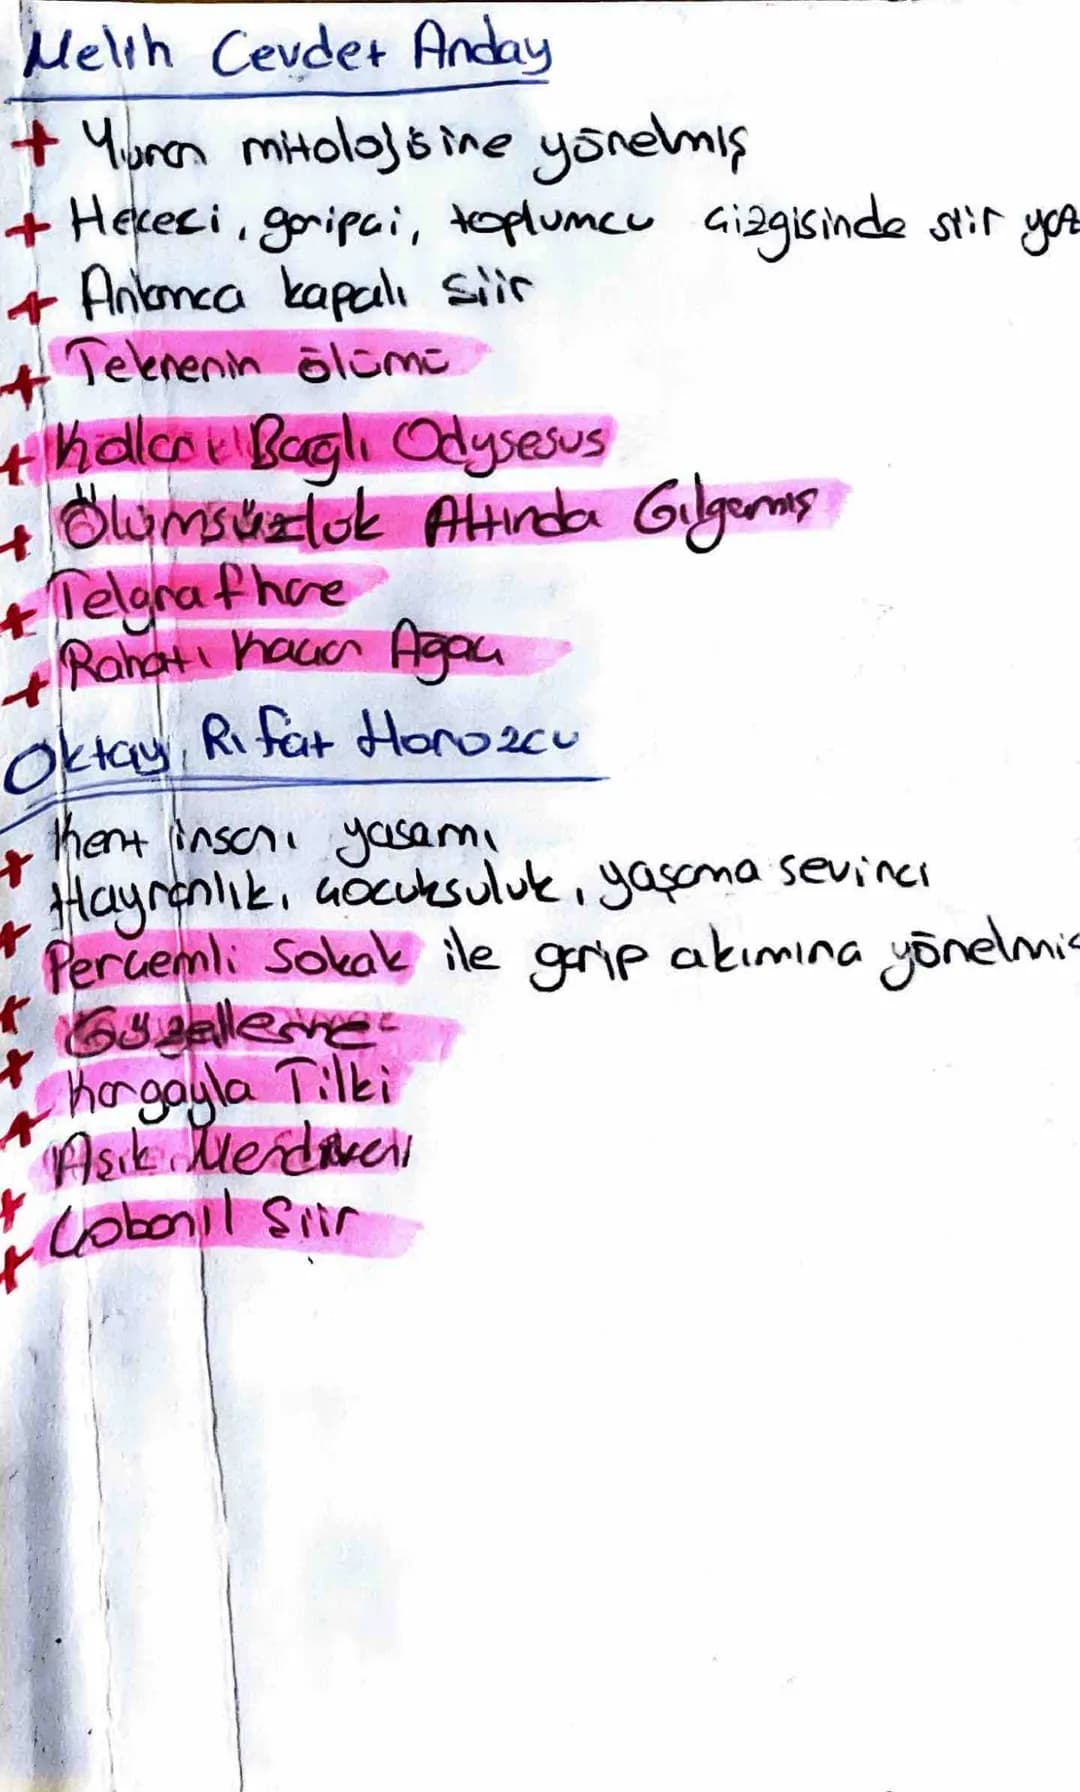 Melih Cevdet Anday
+ Yunan mitolojisine yönelmiş
+ Hececi, garipçi, toplumcu çizgisinde şiir yaz
+ Anlamca kapalı şiir
+ Teknenin ölümü
+ Kolları Bağlı Odysesus
+ Ölümsüzlük Altında Gılgamış
+ Telgrafhane
+ Rahatı Kaçan Ağaç
Oktay Rıfat Horozcu
+ Kent insanı yaşamı
+ Hayranlık, çocuksuluk, yaşama sevinci
+ Perçemli Sokak ile garip akımına yönelmiş
+ Güzelleme
+ Kargayla Tilki
+ Aşık Merdiveni
+ Çobanıl Şiir